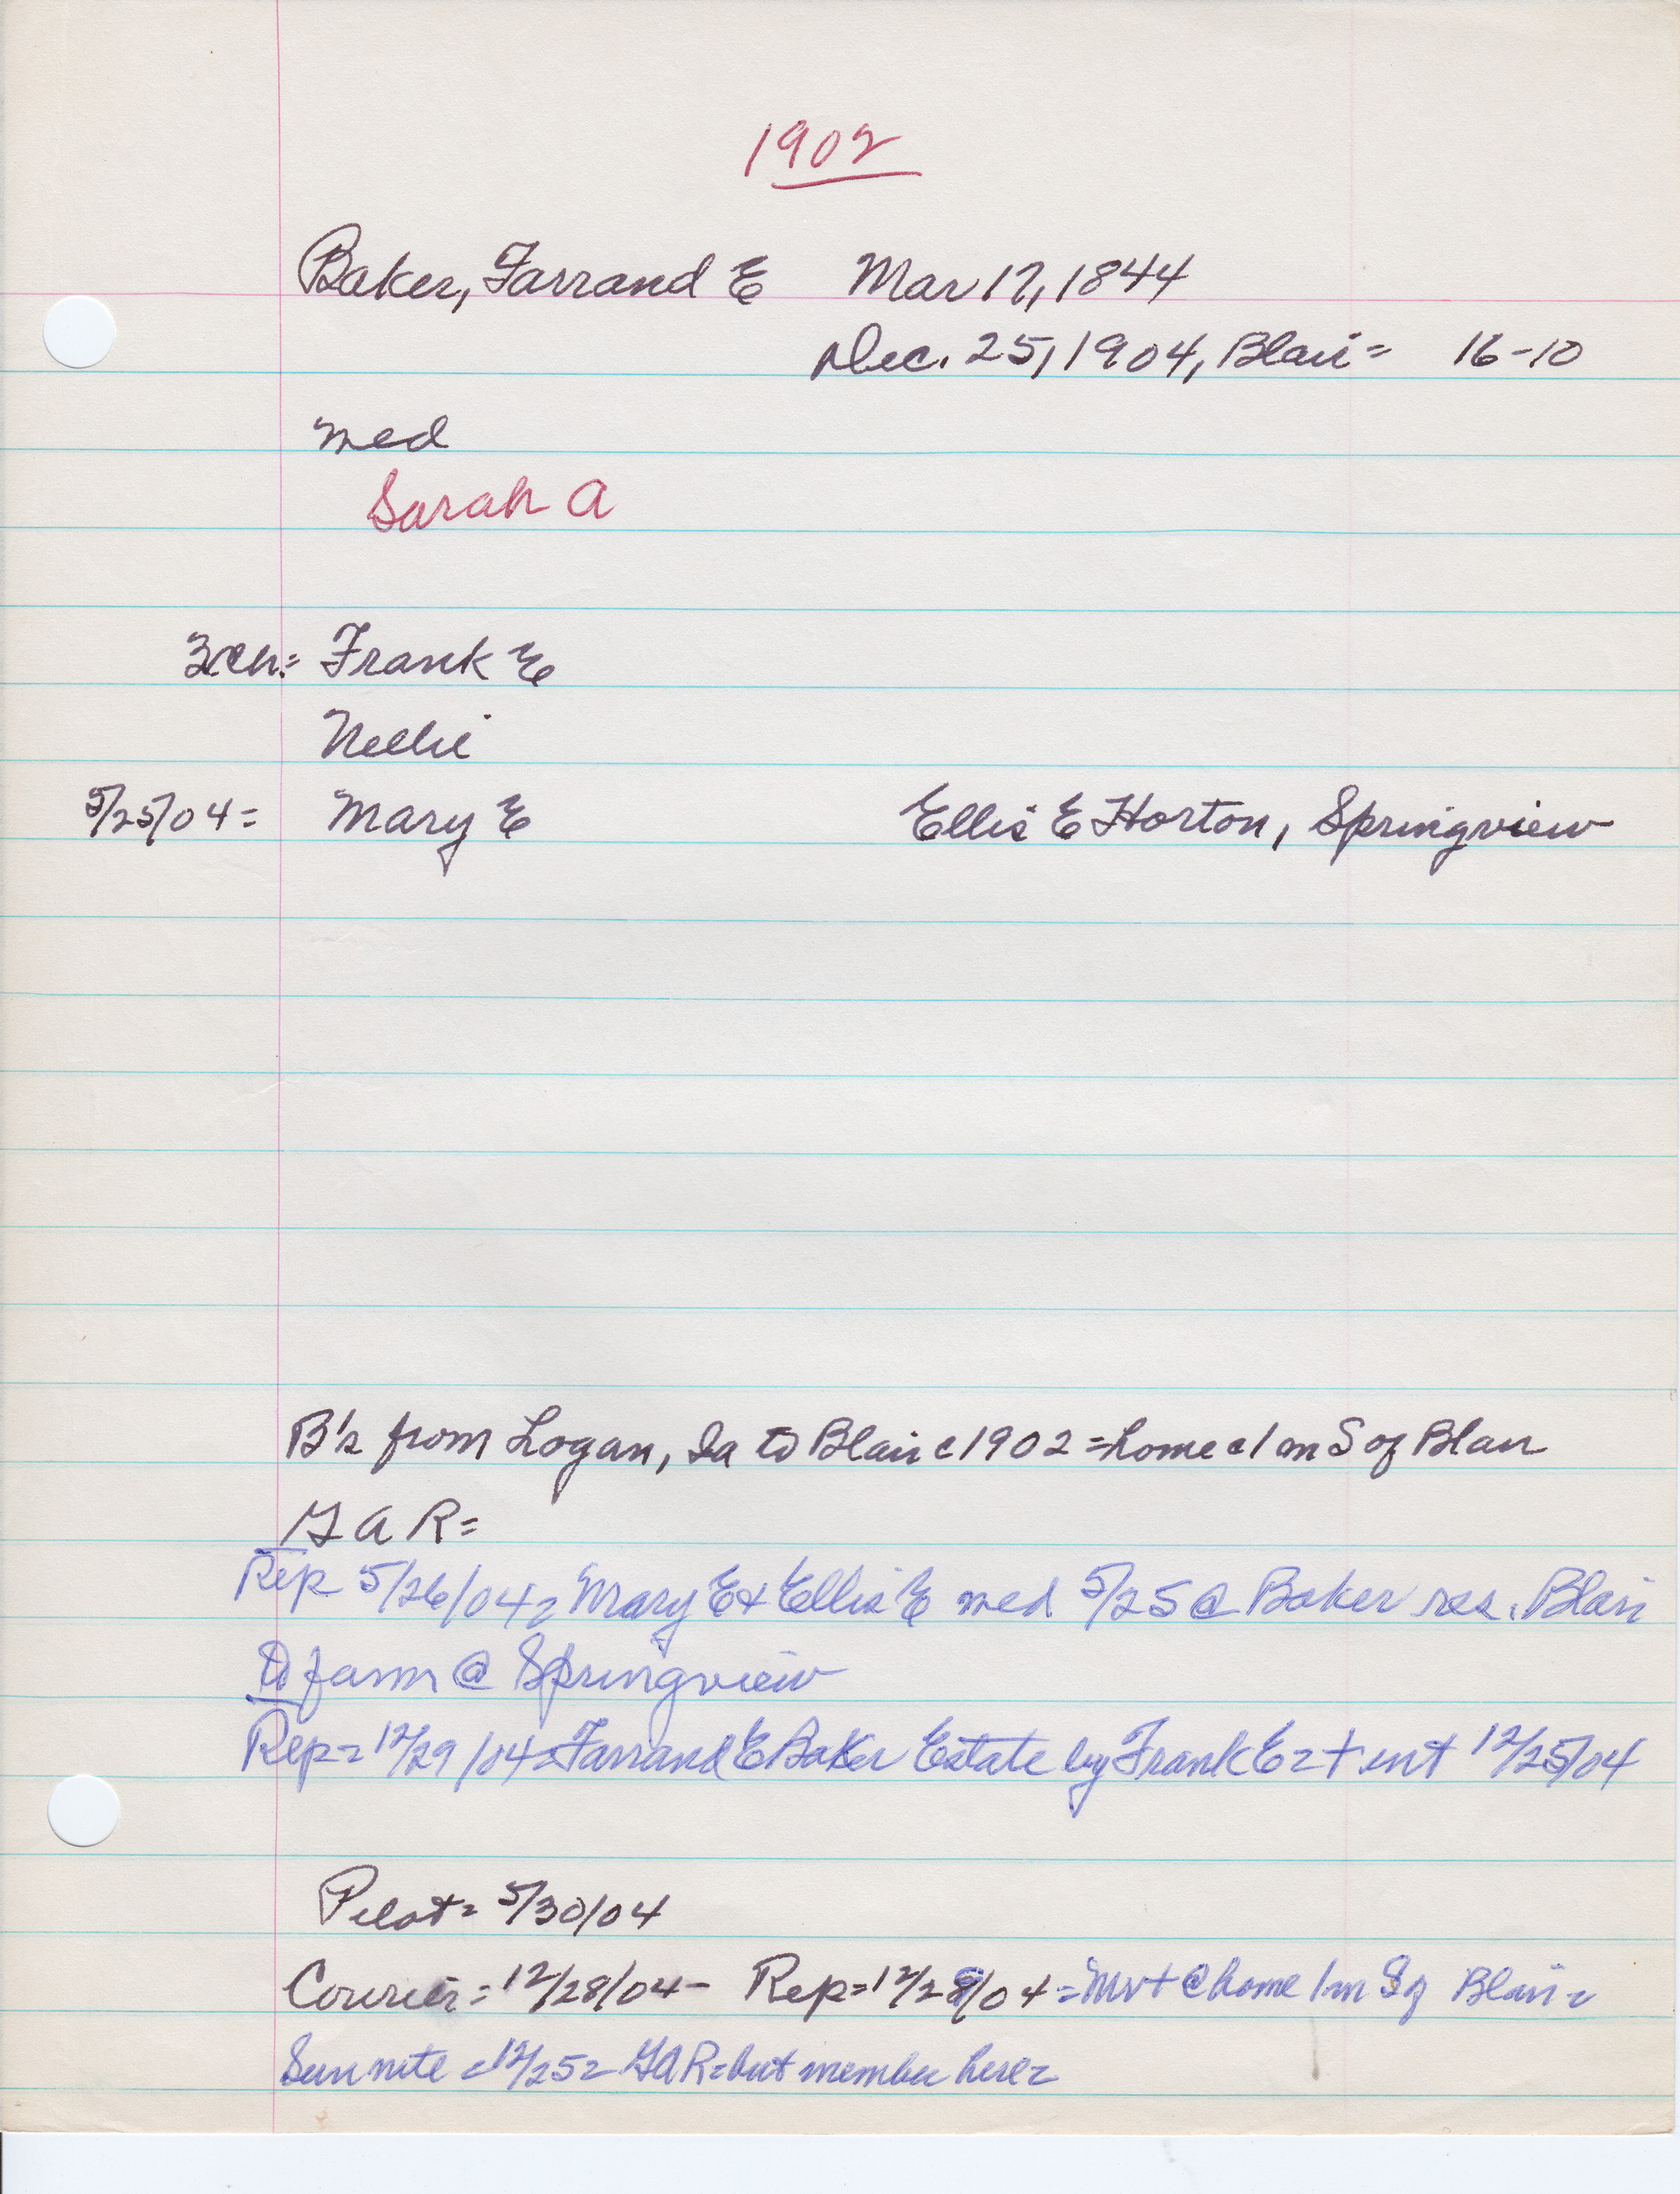 1902
Baker, Farrand E Mar 17, 1844
Dec. 25, 1904, Blair= 16-10
med
Sarah A
3ch.= Frank E
Nellie
5/25/04= Mary E Ellis E Horton, Springview
B's from Logan, Ia to Blair c1902=home c1 m S of Blair
GAR=
Rep 5/26/04= Mary E + Ellis E med 5/25 @ Baker res. Blair
to farm @ Springview
Rep= 12/29/04=Farrand E Baker Estate by Frank E= + int 12/25/04
Pilot= 5/30/04
Courier=12/28/04- Rep=12/29/04= @ home 1 m S of Blair=
Sun nite =12/25= GAR=but member here=